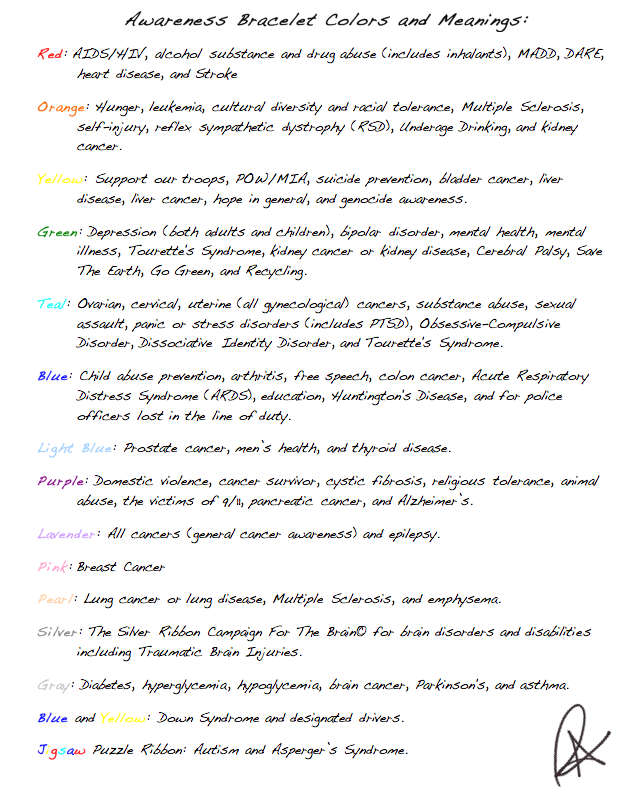 Awareness Bracelet Colors and Meanings:
Red: AIDS/HIV, alcohol substance and drug abuse (includes inhalants), MADD, DARE,
heart disease, and Stroke
Orange: Hunger, leukemia, cultural diversity and racial tolerance, Multiple Sclerosis,
self-injury, reflex sympathetic dystrophy (RSD), Underage Drinking, and kidney
cancer.
Yellow: Support our troops, POW/MIA, suicide prevention, bladder cancer, liver
disease, liver cancer, hope in general, and genocide awareness.
Green: Depression (both adults and children), bipolar disorder, mental health, mental
illness, Tourette's Syndrome, kidney cancer or kidney disease, Cerebral Palsy, Save
The Earth, Go Green, and Recycling.
Teal: Ovarian, cervical, uterine (all gynecological) cancers, substance abuse, sexual
assault, panic or stress disorders (includes PTSD), Obsessive-Compulsive
Disorder, Dissociative Identity Disorder, and Tourette's Syndrome.
Blue: Child abuse prevention, arthritis, free speech, colon cancer, Acute Respiratory
Distress Syndrome (ARDS), education, Huntington's Disease, and for police
officers lost in the line of duty.
Light Blue: Prostate cancer, men's health, and thyroid disease.
Purple: Domestic violence, cancer survivor, cystic fibrosis, religious tolerance, animal
abuse, the victims of 9/11, pancreatic cancer, and Alzheimer's.
Lavender: All cancers (general cancer awareness) and epilepsy.
Pink: Breast Cancer
Pearl: Lung cancer or lung disease, Multiple Sclerosis, and emphysema.
Silver: The Silver Ribbon Campaign For The Brain© for brain disorders and disabilities
including Traumatic Brain Injuries.
Gray: Diabetes, hyperglycemia, hypoglycemia, brain cancer, Parkinson's, and asthma.
Blue and Yellow: Down Syndrome and designated drivers.
Jigsaw Puzzle Ribbon: Autism and Asperger's Syndrome.